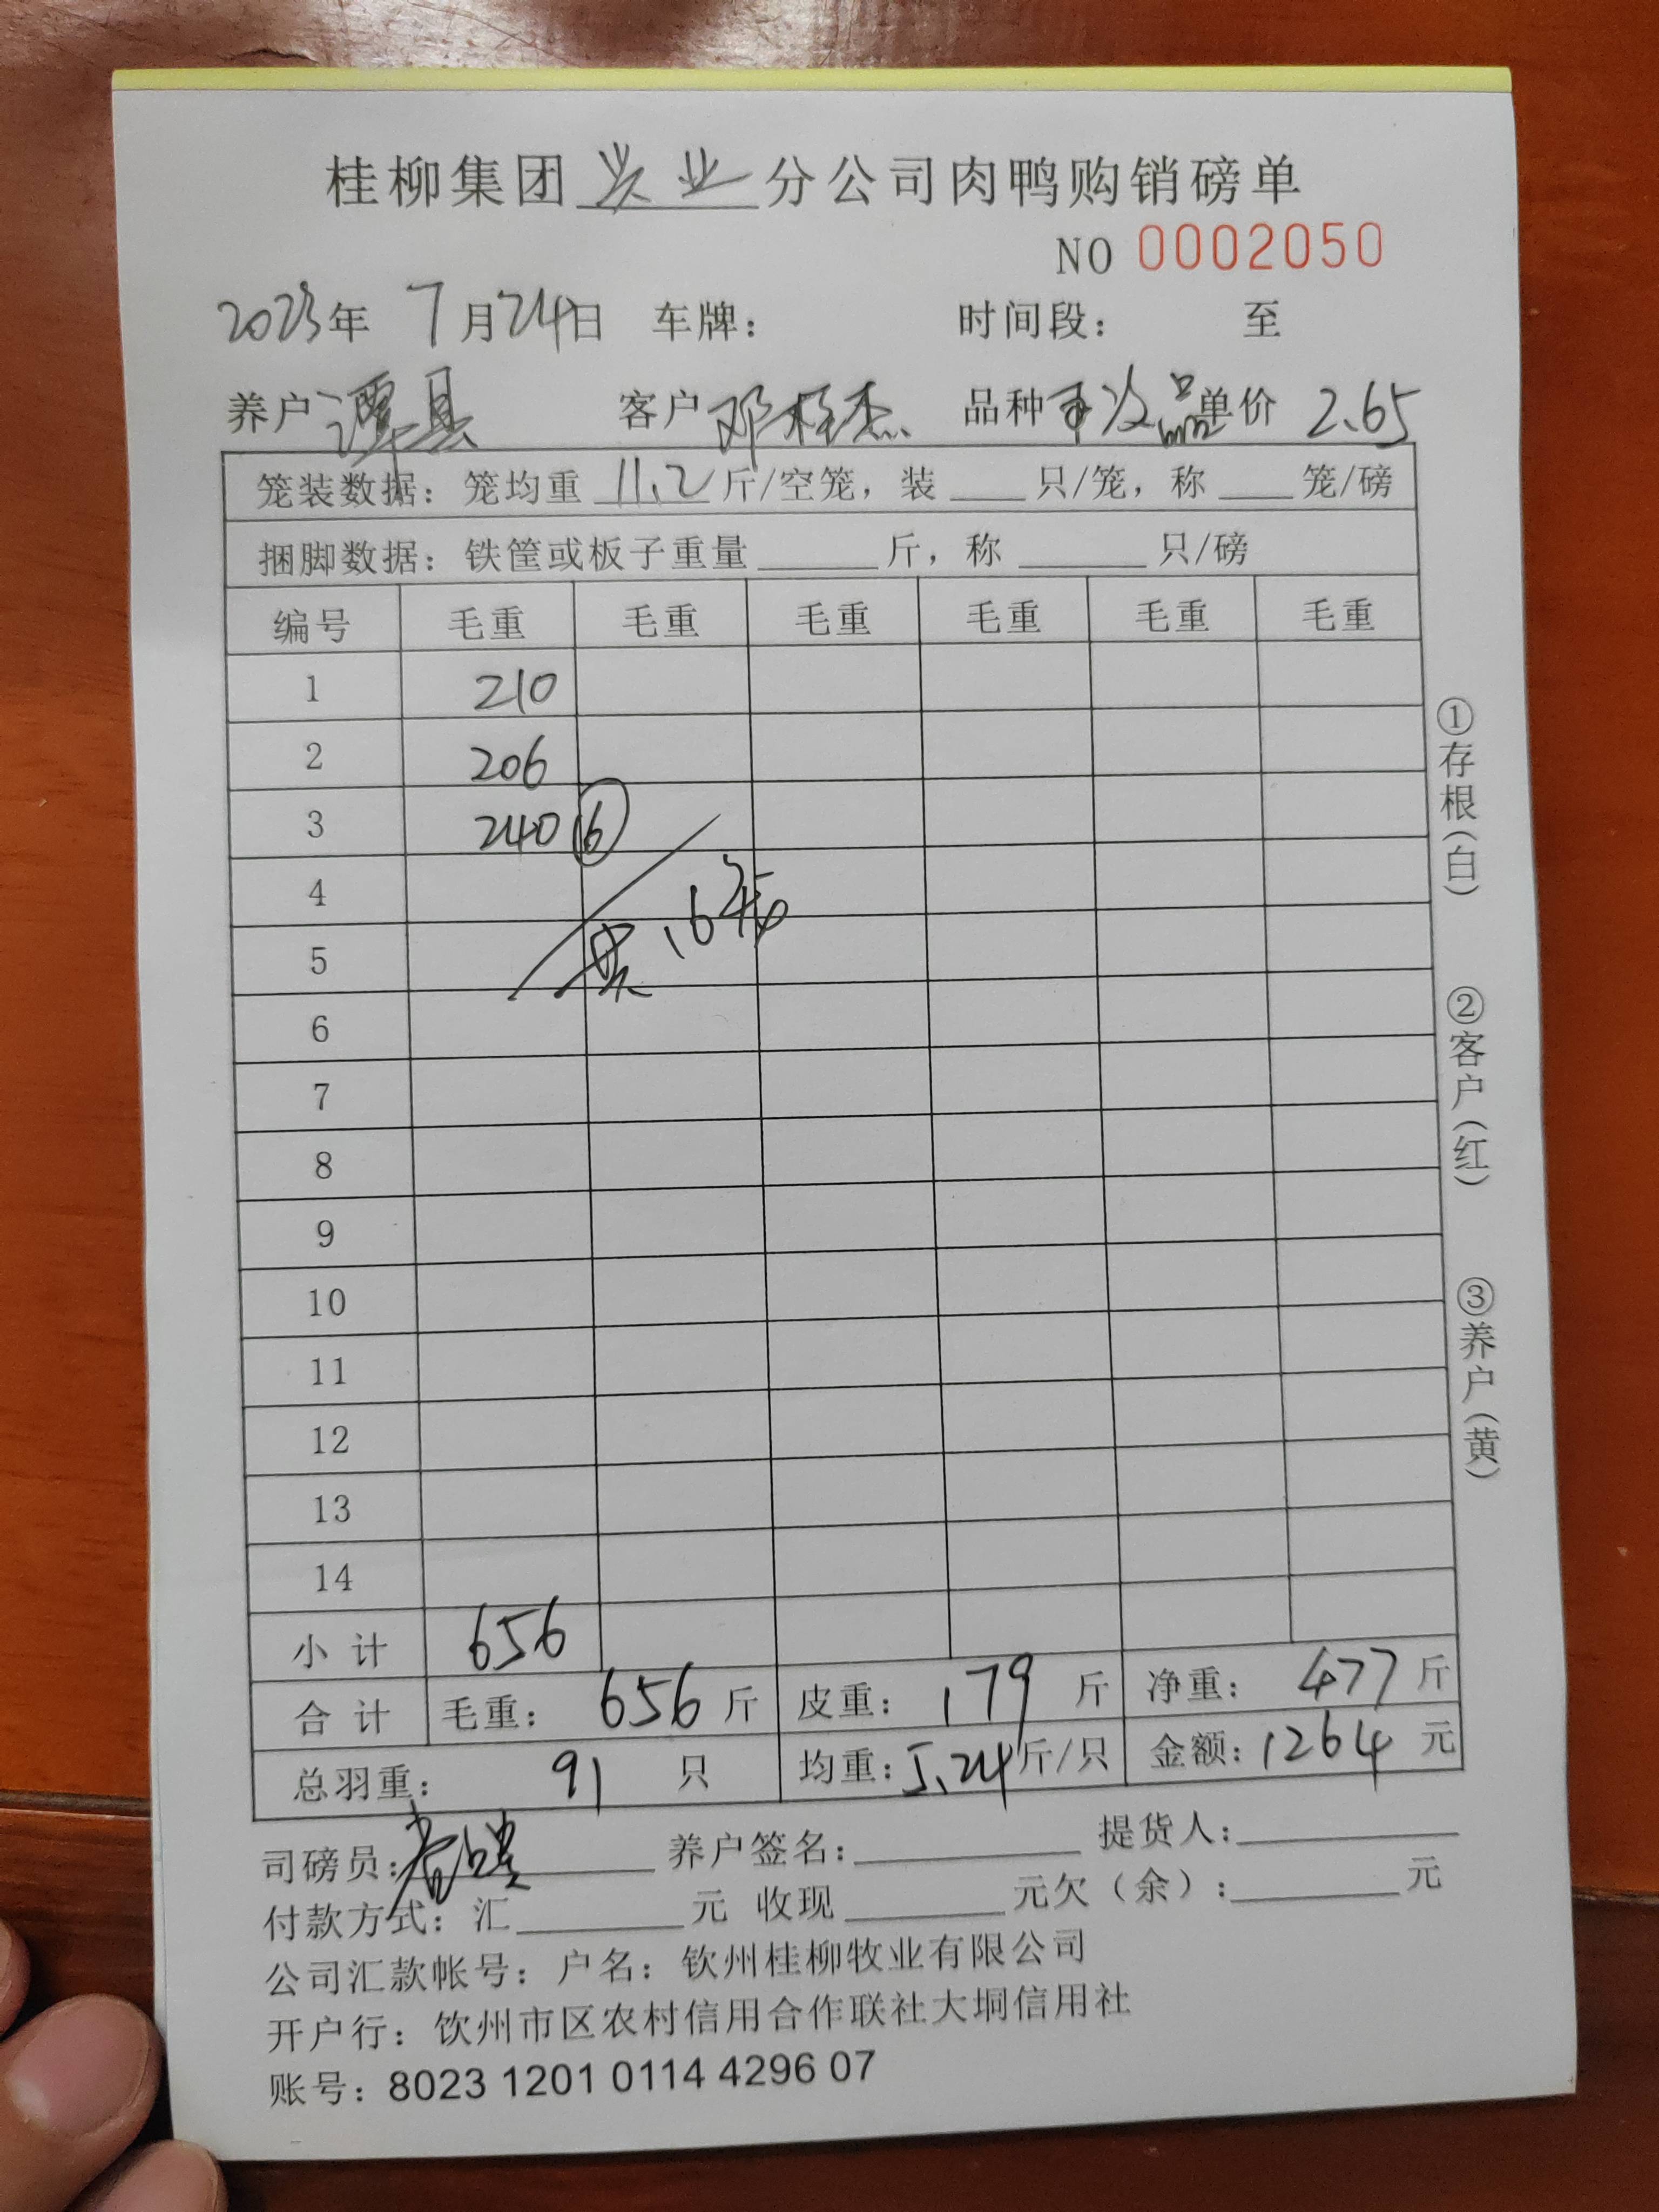 桂柳集团兴业分公司肉鸭购销磅单
NO 0002050
2023年 7月24日 车牌： 时间段： 至
养户 谭县 客户 邓桂杰 品种 次品 单价 2.65
笼装数据：笼均重 11.2 斤/空笼，装 只/笼，称 笼/磅
捆脚数据：铁筐或板子重量 斤，称 只/磅
编号 毛重 毛重 毛重 毛重 毛重 毛重
1 210
2 206
3 240 ⑥
4
5 共16
6
7
8
9
10
11
12
13
14
小计 656
合计 毛重：656斤 皮重：179斤 净重：477斤
总羽重：91只 均重：5.24斤/只 金额：1264元
司磅员： 养户签名： 提货人：
付款方式：汇 元 收现 元欠（余）： 元
公司汇款帐号：户名：钦州桂柳牧业有限公司
开户行：钦州市区农村信用合作联社大垌信用社
账号：8023 1201 0114 4296 07
①存根(白)
②客户(红)
③养户(黄)